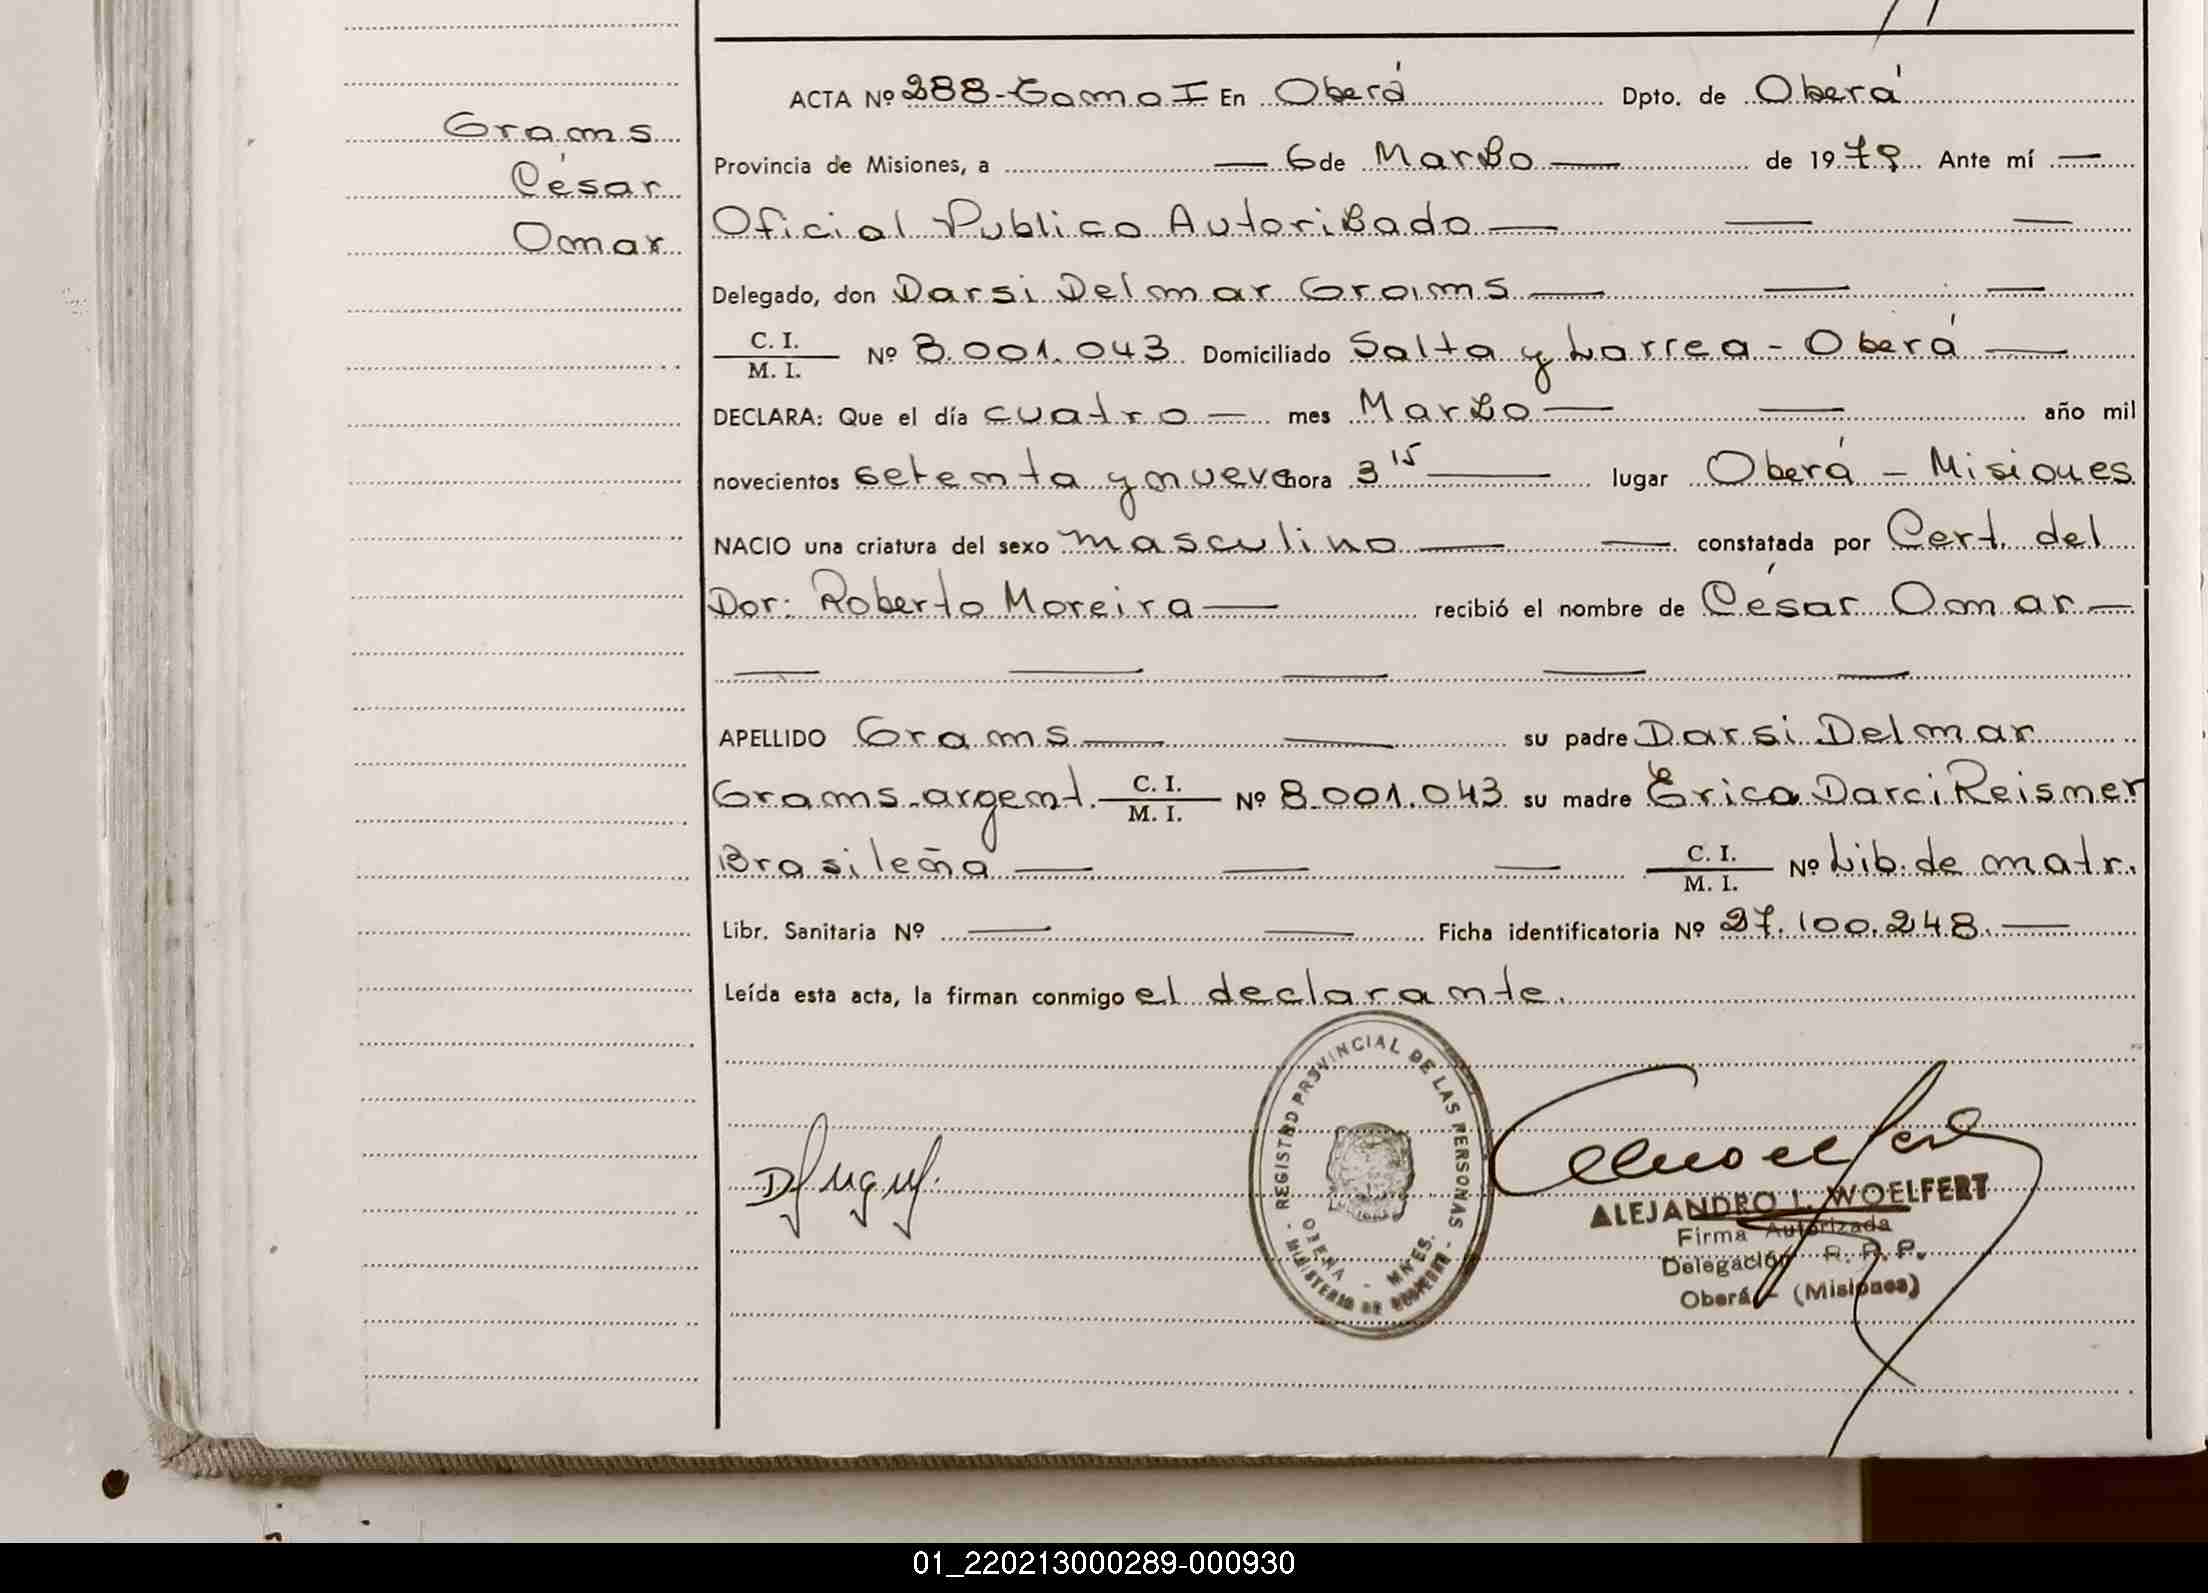 Grams
César
Omar
ACTA Nº 288-Tomo I En Oberá Dpto. de Oberá
Provincia de Misiones, a — 6 de Marzo — de 1979 Ante mí —
Oficial Publico Autorizado — — —
Delegado, don Darsi Delmar Grams — — —
C. I.
M. I. Nº 8.001.043 Domiciliado Salta y Larrea - Oberá —
DECLARA: Que el día cuatro — mes Marzo — — año mil
novecientos setenta y nueve hora 3 15 — lugar Oberá - Misiones
NACIO una criatura del sexo masculino — — constatada por Cert. del
Dor: Roberto Moreira — recibió el nombre de César Omar —
— — — — —
APELLIDO Grams — — su padre Darsi Delmar
Grams-argent. C. I.
M. I. Nº 8.001.043 su madre Erica Darci Reismer
Brasileña — — — C. I.
M. I. Nº Lib. de matr.
Libr. Sanitaria Nº — — Ficha identificatoria Nº 27.100.248. —
Leída esta acta, la firman conmigo el declarante.
- REGISTRO PROVINCIAL DE LAS PERSONAS -
MINISTERIO DE GOBIERNO
OBERA - MNES.
ALEJANDRO L. WOELFERT
Firma Autorizada
Delegación R. P. P.
Oberá - (Misiones)
01_220213000289-000930